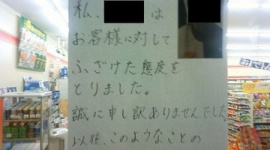 私、 は
お客様に対して
ふざけた態度を
とりました。
誠に申し訳ありませんでした
以後、このようなことの